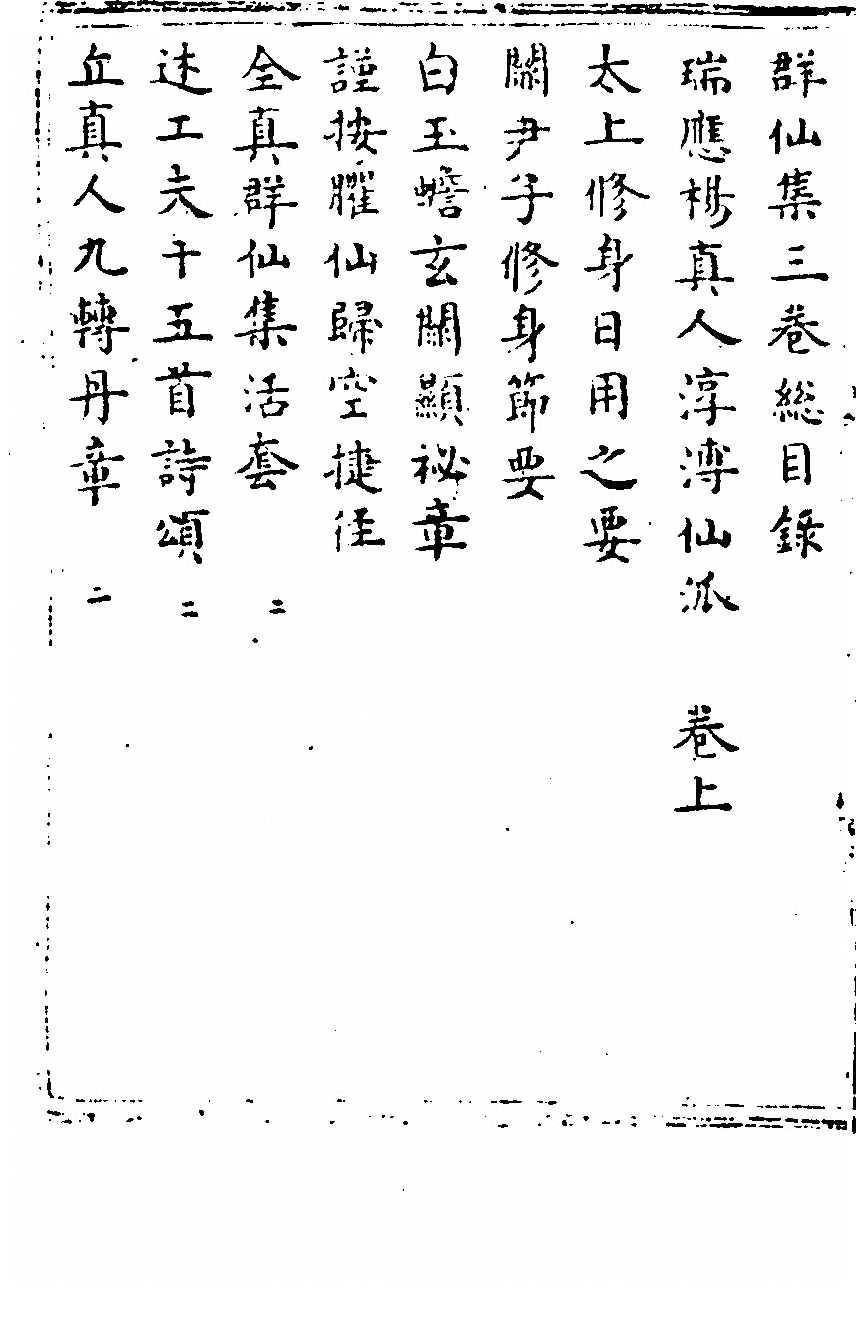 群仙集三卷総目錄
瑞應楊真人淳溥仙派 卷上
太上修身日用之要
關尹子修身節要
白玉蟾玄關顯祕章
謹按臞仙歸空捷徑
全真群仙集活套 二
述工夫十五首詩頌 二
丘真人九轉丹章 二